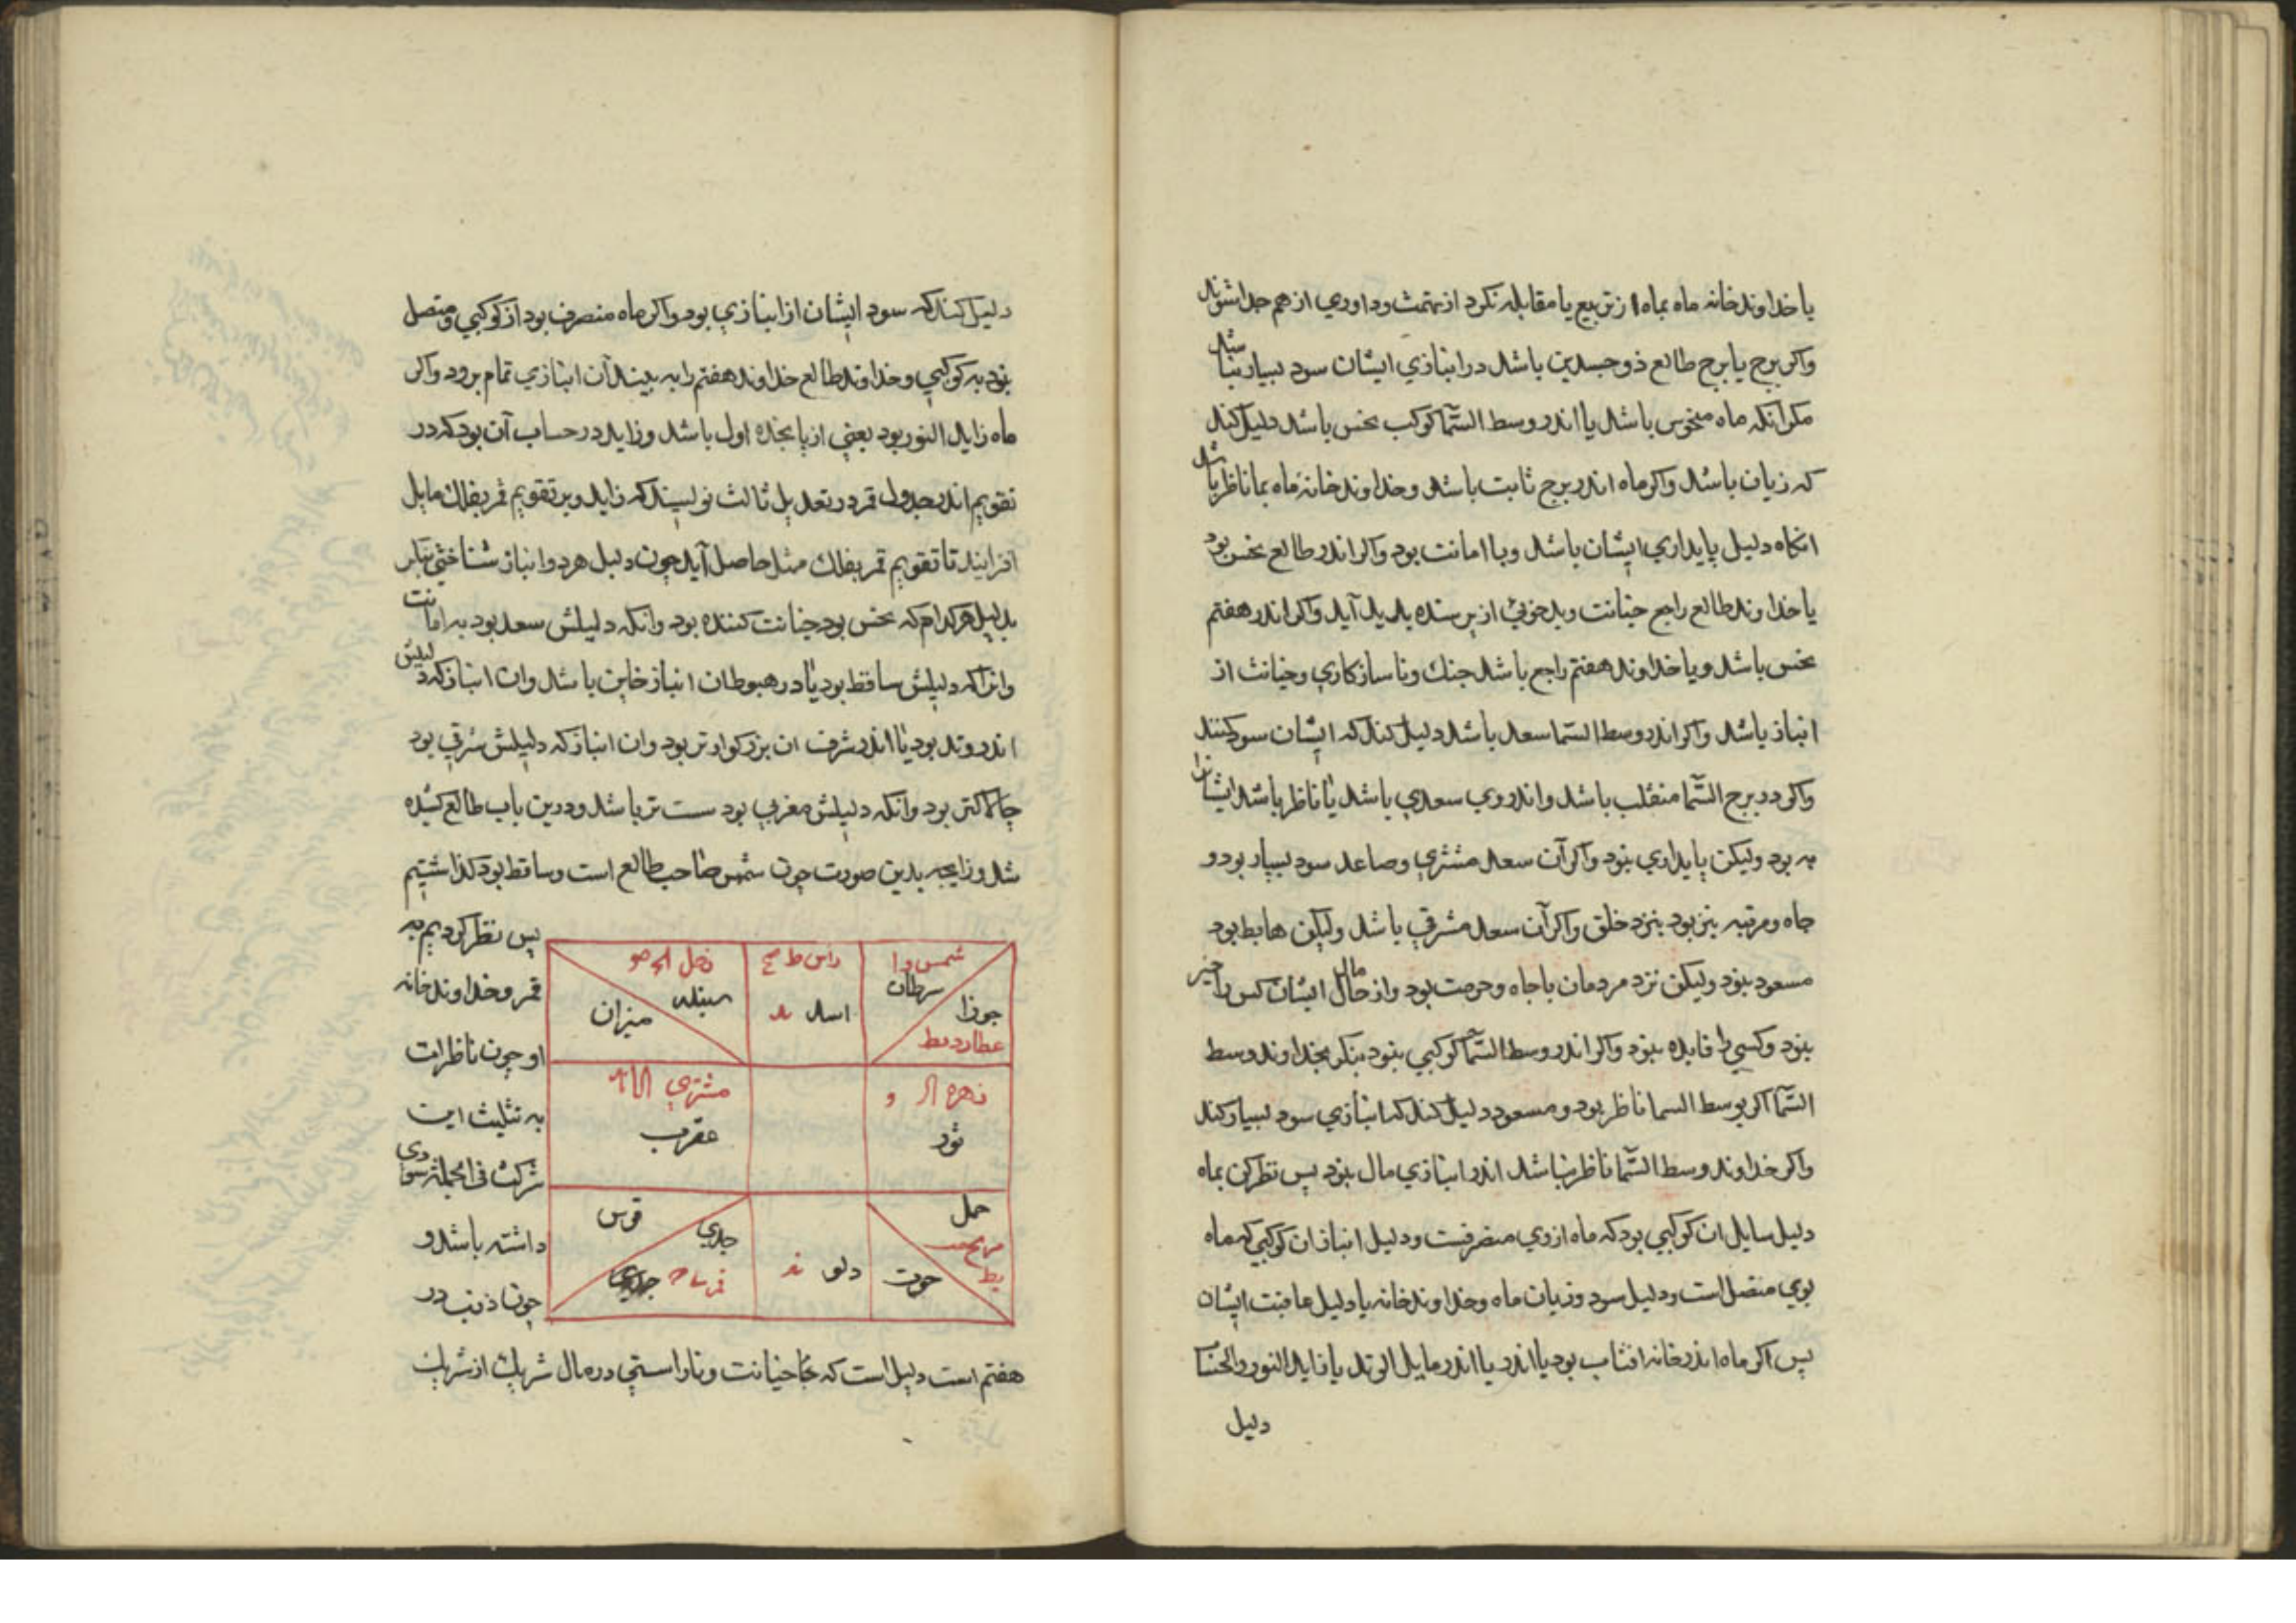 یا خداوند خانه ماه بماه از تربیع یا مقابله نکرد از تهمت وداوری از هم جدا شوند
واکر برج یا برج طالع ذوجسدین باشد در انبازی ایشان سود بسیار نباشد
مکر آنکه ماه منحوس باشد یا اندر وسط السّما کوکب نحس باشد دلیل کند
که زیان باشد واکر ماه اندر برج ثابت باشد وخداوند خانه ماه بما ناظر باشد
انکاه دلیل پایداری ایشان باشد وبا امانت بود واکر اندر طالع نحس بود
یا خداوند طالع راجع خیانت وبدخویی از پرسنده پدید آید واکر اندر هفتم
نحس باشد ویا خداوند هفتم راجع باشد جنك وناسازکاری وخیانت از
انباز باشد واکر اندر وسط السّما سعد باشد دلیل کند که ایشان سود کنند
واکر در برج السّما منقلب باشد واندر وی سعدی باشد یا ناظر باشد ایشانرا
به بود ولیکن پایداری نبود واکر آن سعد مشتری وصاعد سود بسیار بود و
جاه ومرتبه نیز بود بنزد خلق واکر آن سعد مشرقی باشد ولیکن هابط بود
مسعود نبود ولیکن نزد مردمان با جاه وحرمت بود واز حال مال ایشان کس را خیر
نبود وکسی را فایده نبود واکر اندر وسط السّما کوکبی نبود بنکر بخداوند وسط
السّما اکر بوسط السما ناظر بود ومسعود دلیل کند که انبازی سود بسیار کند
واکر خداوند وسط السّما ناظر نباشد اندر انبازی مال نبود پس نظر کن بماه
دلیل سایل ان کوکبی بود که ماه از وی منصرفست ودلیل انباز ان کوکبی که ماه
بوی متصل است ودلیل سود وزیان ماه وخداوند خانه یا دلیل عاقبت ایشان
پس اکر ماه اندر خانه افتاب بود یا اندر یا اندر مایل الوتد یا زاید النور والحساب
دلیل
دلیل کند که سود ایشان از انبازی بود واکر ماه منصرف بود از کوکبی ومتصل
نبود به کوکبی وخداوند طالع خداوند هفتم را به بیند آن انبازی تمام برود واکر
ماه زاید النور بود یعنی از پانجده اول باشد وزاید در حساب آن بود که در
تقویم اندر جدول قمر در تعدیل ثالث نویسند که زاید وبر تقویم قمر بفلك مایل
افزایند تا تقویم قمر بفلك مثل حاصل آید چون دلیل هر دو انباز شناختی بنکر
بدلیل هر کدام که نحس بود خیانت کننده بود وانکه دلیلش سعد بود به امانت
وانرا که دلیلش ساقط بود یا در هبوط ان انباز خاین باشد وان انباز که دلیلش
اندر وتد بود یا اندر شرف ان بزرکوارتر بود وان انباز که دلیلش شرقی بود
چالاکتر بود وانکه دلیلش مغربی بود سست تر باشد ودرین باب طالع کشیده
شد وزایجه بدین صورت چون شمس صاحب طالع است وساقط بود کذاشتیم
پس نظر کردیم به
قمر وخداوند خانه
او چون ناظرات
به تثلیث این
شرکت فی الجمله سودی
داشته باشد و
چون ذنب در
شمس
سرطان
جوزا
عطارد
راس
اسد
زحل
سنبله
میزان
زهره
ثور
مشتری
عقرب
حمل
مریخ
حوت
دلو
جدی
قوس
قمر
هفتم است دلیل است که خیانت وناراستی در مال شریك از شریك